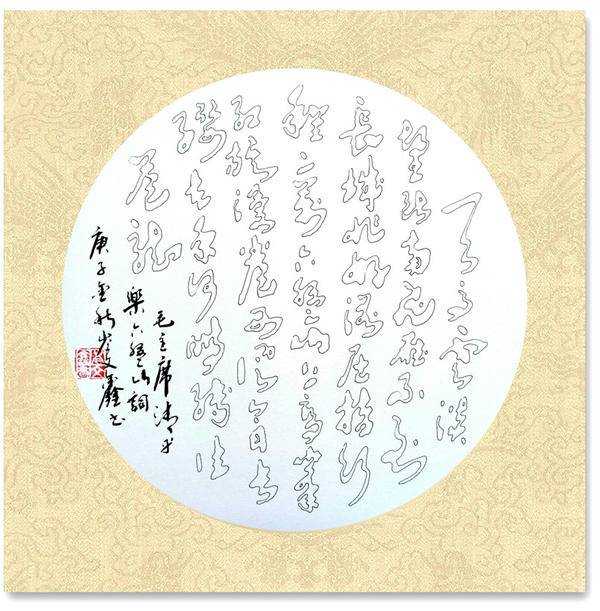 天高雲淡
望断南飛雁不到
長城非好漢屈指行
程二萬六盤山上高峯
紅旗漫卷西風今日長
纓在手何時縛住
蒼龍
毛主席清平
樂六盤山詞
庚子金秋鑫书